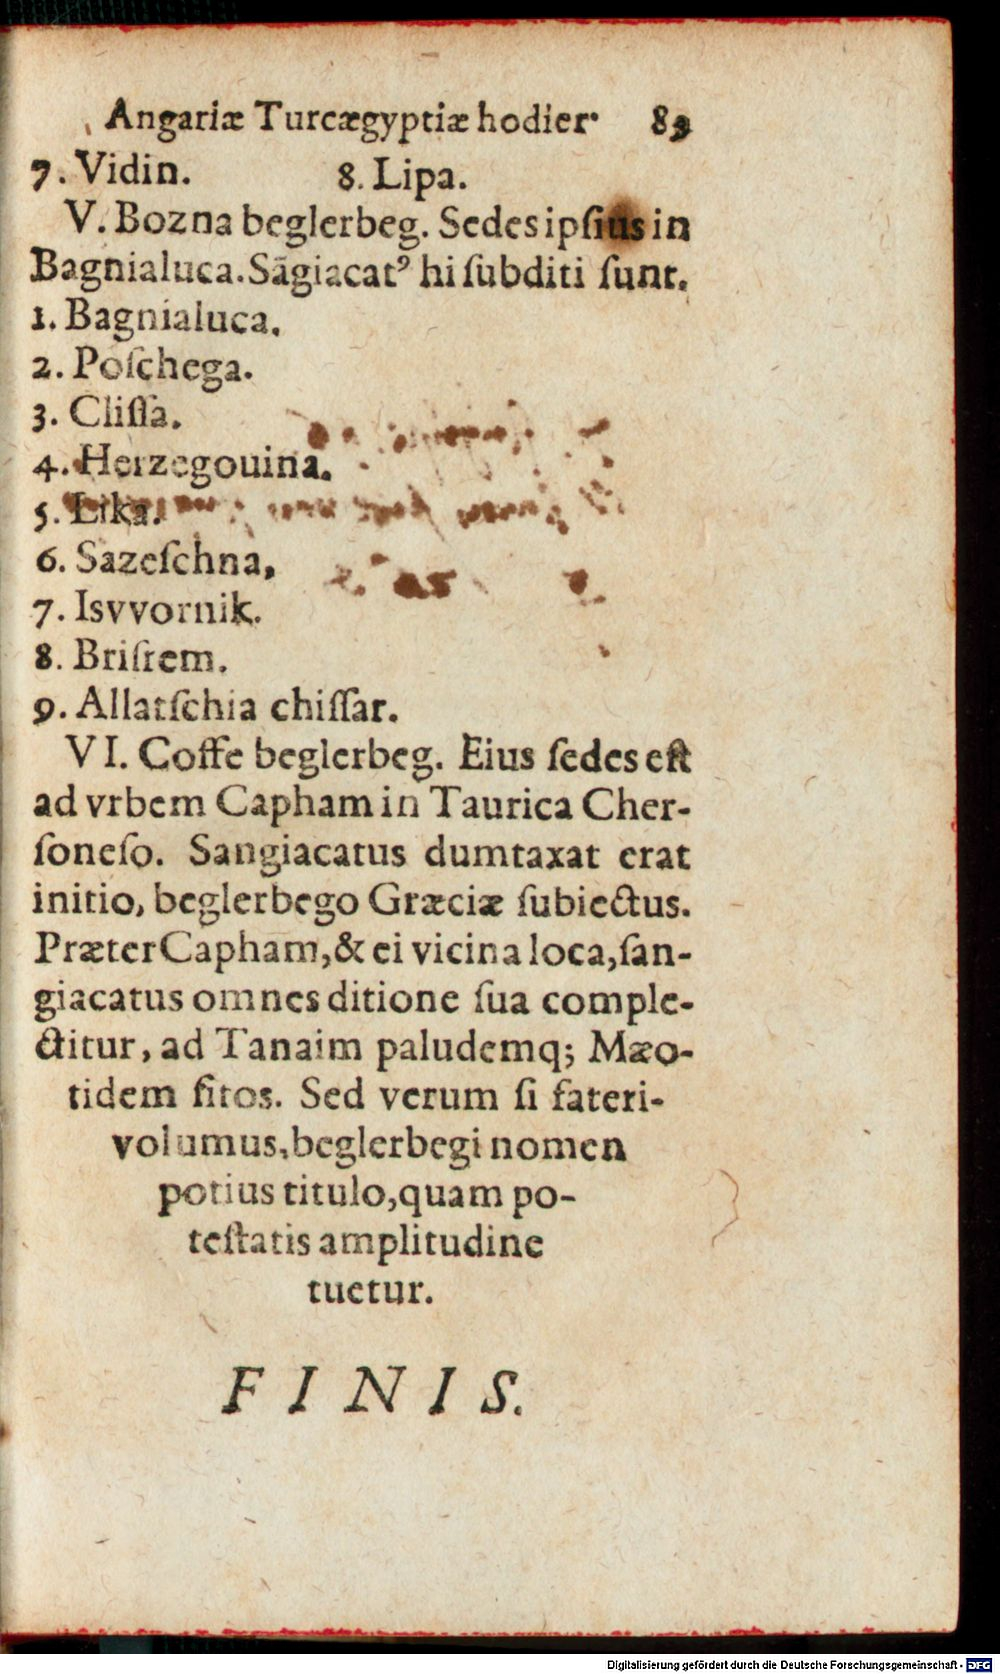 Angariæ Turcægyptiæ hodier. 89
7. Vidin. 8. Lipa.
V. Bozna beglerbeg. Sedes ipſius in
Bagnialuca. Sãgiacatꝰ hi ſubditi ſunt.
1. Bagnialuca.
2. Poſchega.
3. Cliſſa.
4. Herzegouina.
5. Lika.
6. Sazeſchna,
7. Isvvornik.
8. Briſtem.
9. Allatſchia chiſſar.
VI. Coffe beglerbeg. Eius ſedes eſt
ad vrbem Capham in Taurica Cher-
ſoneſo. Sangiacatus dumtaxat erat
initio, beglerbego Græciæ ſubiectus.
Præter Capham, & ei vicina loca, ſan-
giacatus omnes ditione ſua comple-
ctitur, ad Tanaim paludemq; Mæo-
tidem ſitos. Sed verum ſi fateri-
volumus, beglerbegi nomen
potius titulo, quam po-
teſtatis amplitudine
tuetur.
FINIS.
Digitalisierung gefördert durch die Deutsche Forschungsgemeinschaft - DFG